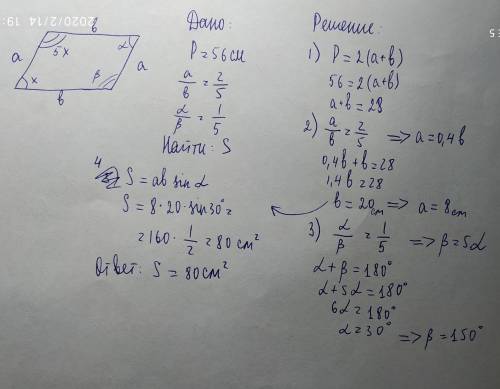 2020/2/14 19:
b
a
5x
α
x
β
a
b
Дано:
P = 56 см
a/b = 2/5
α/β = 1/5
Найти: S
Решение:
1) P = 2(a+b)
56 = 2(a+b)
a+b = 28
2) a/b = 2/5 => a = 0,4b
0,4b + b = 28
1,4b = 28
b = 20 cm => a = 8 cm
3) α/β = 1/5 => β = 5α
α + β = 180°
α + 5α = 180°
6α = 180°
α = 30° => β = 150°
4) S = ab sin α
S = 8 · 20 · sin 30° =
= 160 · 1/2 = 80 cm²
Ответ: S = 80 cm²